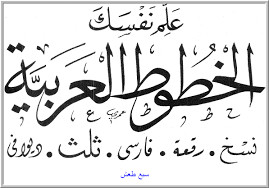 علم نفسك
الخطوط العربية
نسخ . رقعة . فارسى . ثلث . ديوانى
سبع طعش